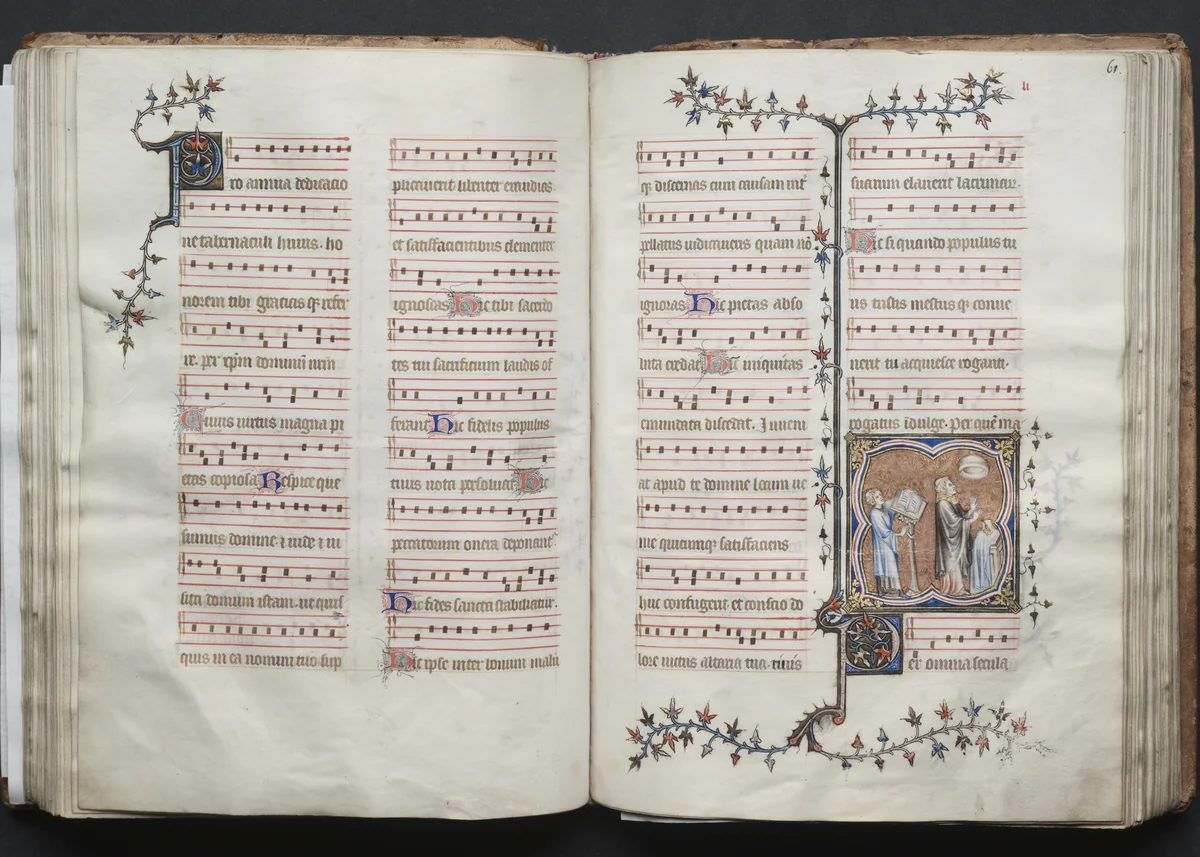 Pro annua dedicatio
ne tabernaculi huius. ho
norem tibi gracias qȝ refer
re. per xp̄m dominū nr̄m
Cuius virtus magna pi
etas copiosa Respice que
sumus domine ⁊ vide ⁊ vi
sita domum istam. ut quis
quis in ea nomini tuo sup
plicaverit libenter exaudias.
et satisfacientibus clementer
ignoscas Hic tibi sacerdo
tes tui sacrificium laudis of
ferant Hic fidelis populus
tuus vota persoluat Hic
peccatorum onera deponant
Hic fides sancta stabiliatur.
Hic ipse inter bonum malū
qȝ discernas cum causam int̄
pellatus iudicaueris quam nō
ignoras Hic pietas abso
luta credat Hic iniquitas
emundata discedat. Inueni
at apud te domine locum ue
nie quicumqȝ satisfaciens
huc confugerit et conscio do
lore uictus altaria tua. riuis
suarum elauerit lacrimar.
Hic si quando populus tu
us tristis mestus qȝ conue
nerit tu acquiesce rogari.
rogatus īdulge. Per quē ma
Per omnia secula
61.